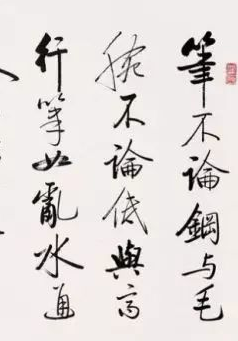 筆不論鋼与毛
腕不論低與高
行筆如亂水通